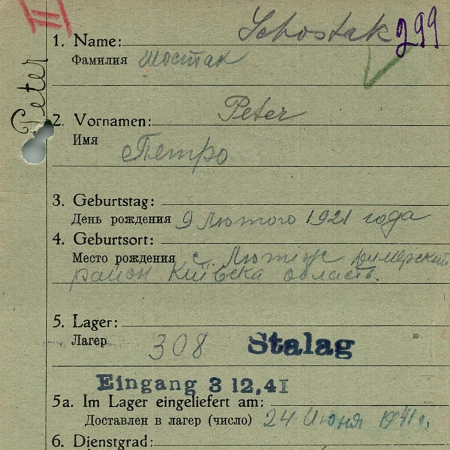 II
299
Peter
1. Name: Schostak
Фамилия Шостак
2. Vornamen: Peter
Имя Петро
3. Geburtstag:
День рождения 9 Лютого 1921 года
4. Geburtsort:
Место рождения с. Лютіж Димерский
район Київска область.
5. Lager:
Лагер 308 Stalag
Eingang 3 12.41
5a. Im Lager eingeliefert am:
Доставлен в лагер (число) 24 Июня 1941 г,
6. Dienstgrad: